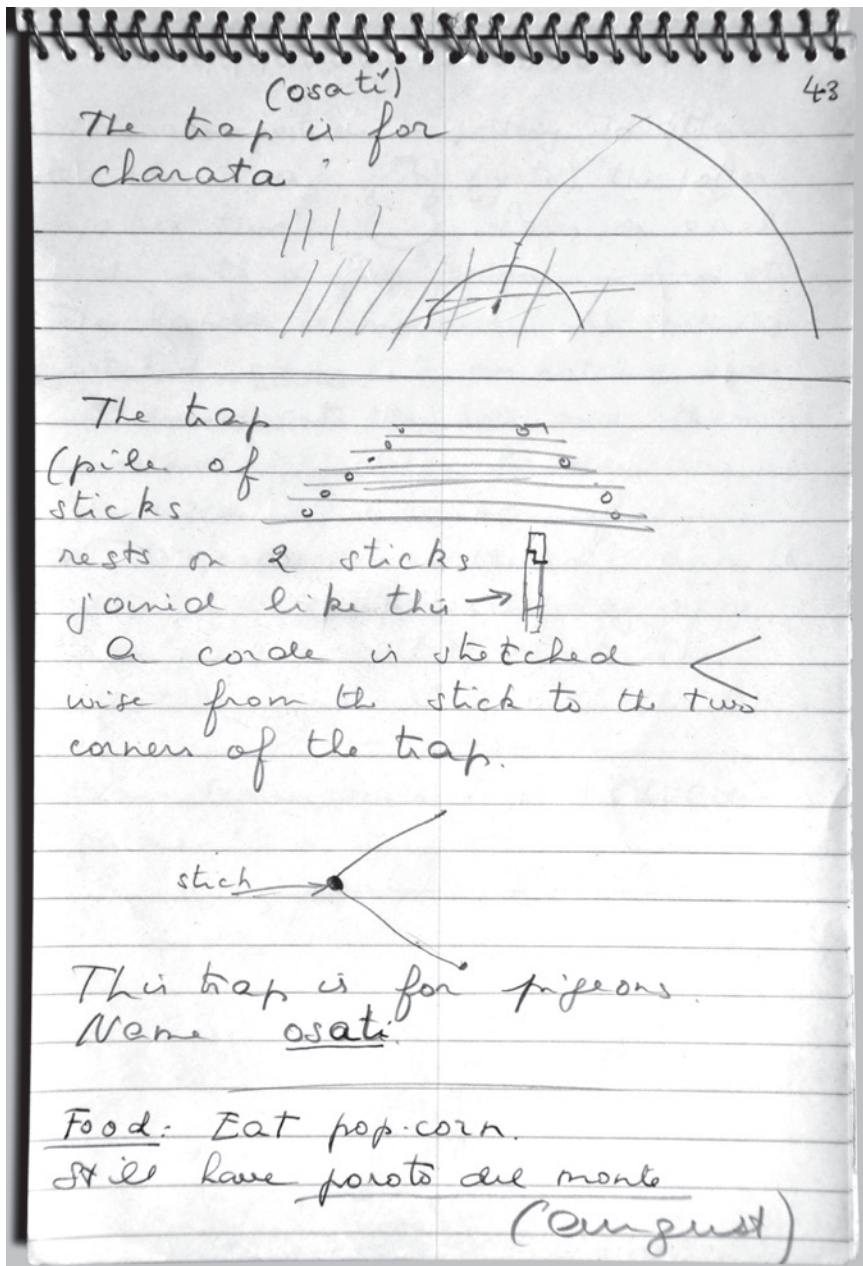 (osatí)
43
The trap is for
charata
The trap
(pile of
sticks
rests on 2 sticks
joined like this →
A corde is stretched <
wise from the stick to the two
corners of the trap.
stich
This trap is for pigeons.
Name osati.
Food: Eat pop-corn.
Still have poroto del monte
(august)